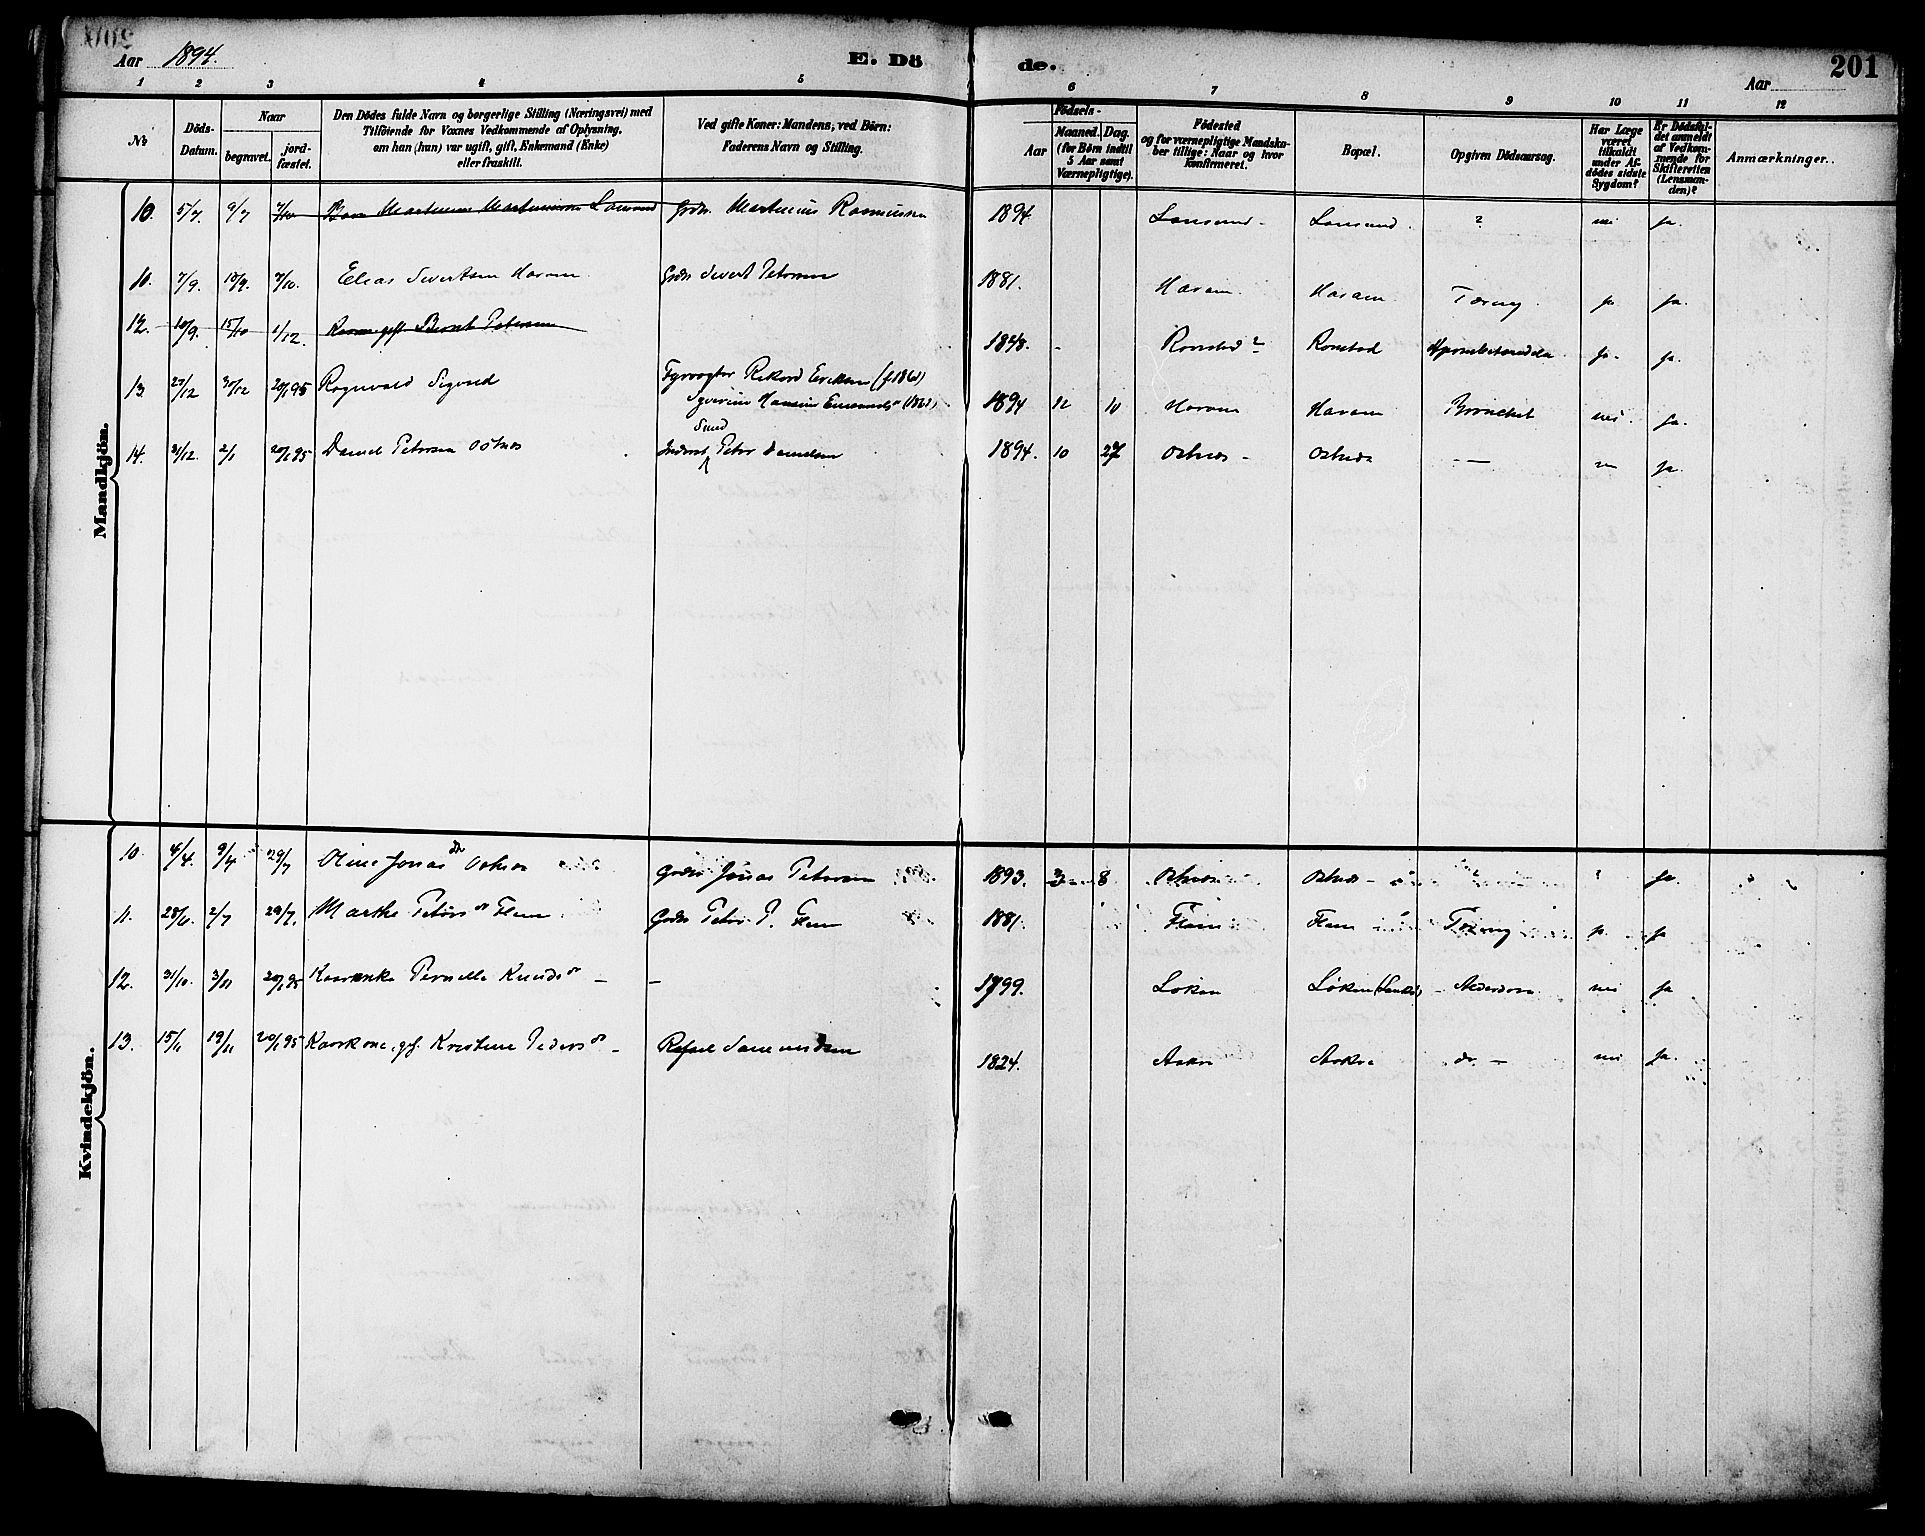 Aar 1894.
E. Dö
de.
Aar
201
1 2 3 4 5 6 7 8 9 10 11 12
No
Döds-Datum.
Naar
begravet.
jord-fæstet.
Den Dödes fulde Navn og borgerlige Stilling (Næringsvei) med
Tilföiende for Voxnes Vedkommende af Oplysning,
om han (hun) var ugift, gift, Enkemand (Enke)
eller fraskilt.
Ved gifte Koner: Mandens; ved Börn:
Faderens Navn og Stilling.
Födsels-
Aar
Maaned. Dag.
(for Börn indtil
5 Aar samt
Værnepligtige).
Födested
og for værnepligtige Mandska-
ber tillige: Naar og hvor
konfirmeret.
Bopæl.
Opgiven Dödsaarsag.
Har Læge
været
tilkaldt
under Af-
dödes sidste
Sygdom?
Er Dödsfal-
det anmeldt
af Vedkom-
mende for
Skifteretten
(Lensman-
den)?
Anmærkninger.
Mandkjön.
10. 5/7. 9/7 7/10 Martinus Martinusen Grdr. Martinus Rasmussen 1894 ? nei ja.
10. 7/9. 7/10. Elias Sivertsen Haram Grdr Sivert Petersen 1881. Haram. Haram Tæring ja ja.
12. 10/9. 15/10 1/12. Bernt Petersen 1848. - Ronstad ? Ronstad ja. ja.
13. 27/12 30/12 20/1 95 Ragnvald Sigurd Fyrvogter Rikard Eriksen (f. 1861) 1894 12 10 Haram Haram Bronchit nei. ja.
14. 31/12. 2/1 20/1 95 Daniel Petersen Ostnes Inderst Smed Peter Danielsen 1894. 10 27 Ostnes - Ostnes — ja.
Kvindekjön.
10. 4/4. 9/4 29/7 Oline Jonasdr Ostnes Grdr Jonas Petersen 1893. 3 8 Ostnes Ostnes ? ? ja.
11. 28/6. 2/7 29/7. Marthe Petersdr Flem Grdr Peter P. Flem 1881. Flem Flem Tæring ja ja
12. 31/10. 3/11 20/1 95 Kaarenke Pernella Knudsdr — — 1799. Løken Løken Alderdom nei ja
13. 15/11 19/11 20/1 95 Kaarkone, gf. Kristine Pedersdr — 1824. do. — nei ja.